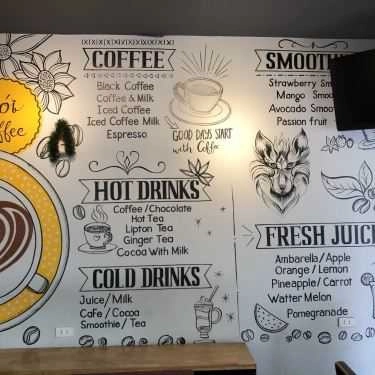 ói
offee
COFFEE
Black Coffee
Coffee & Milk
Iced Coffee
Iced Coffee Milk
Espresso
GOOD DAYS START
with Coffee
HOT DRINKS
Coffee/Chocolate
Hot Tea
Lipton Tea
Ginger Tea
Cocoa With Milk
COLD DRINKS
Juice/Milk
Cafe / Cocoa
Smoothie / Tea
SMOOTHI
Strawberry Sm
Mango Smoo
Avocado Smoot
Passion fruit
FRESH JUIC
Ambarella/Apple
Orange / Lemon
Pineapple/ Carrot
Watter Melon
Pomegranade